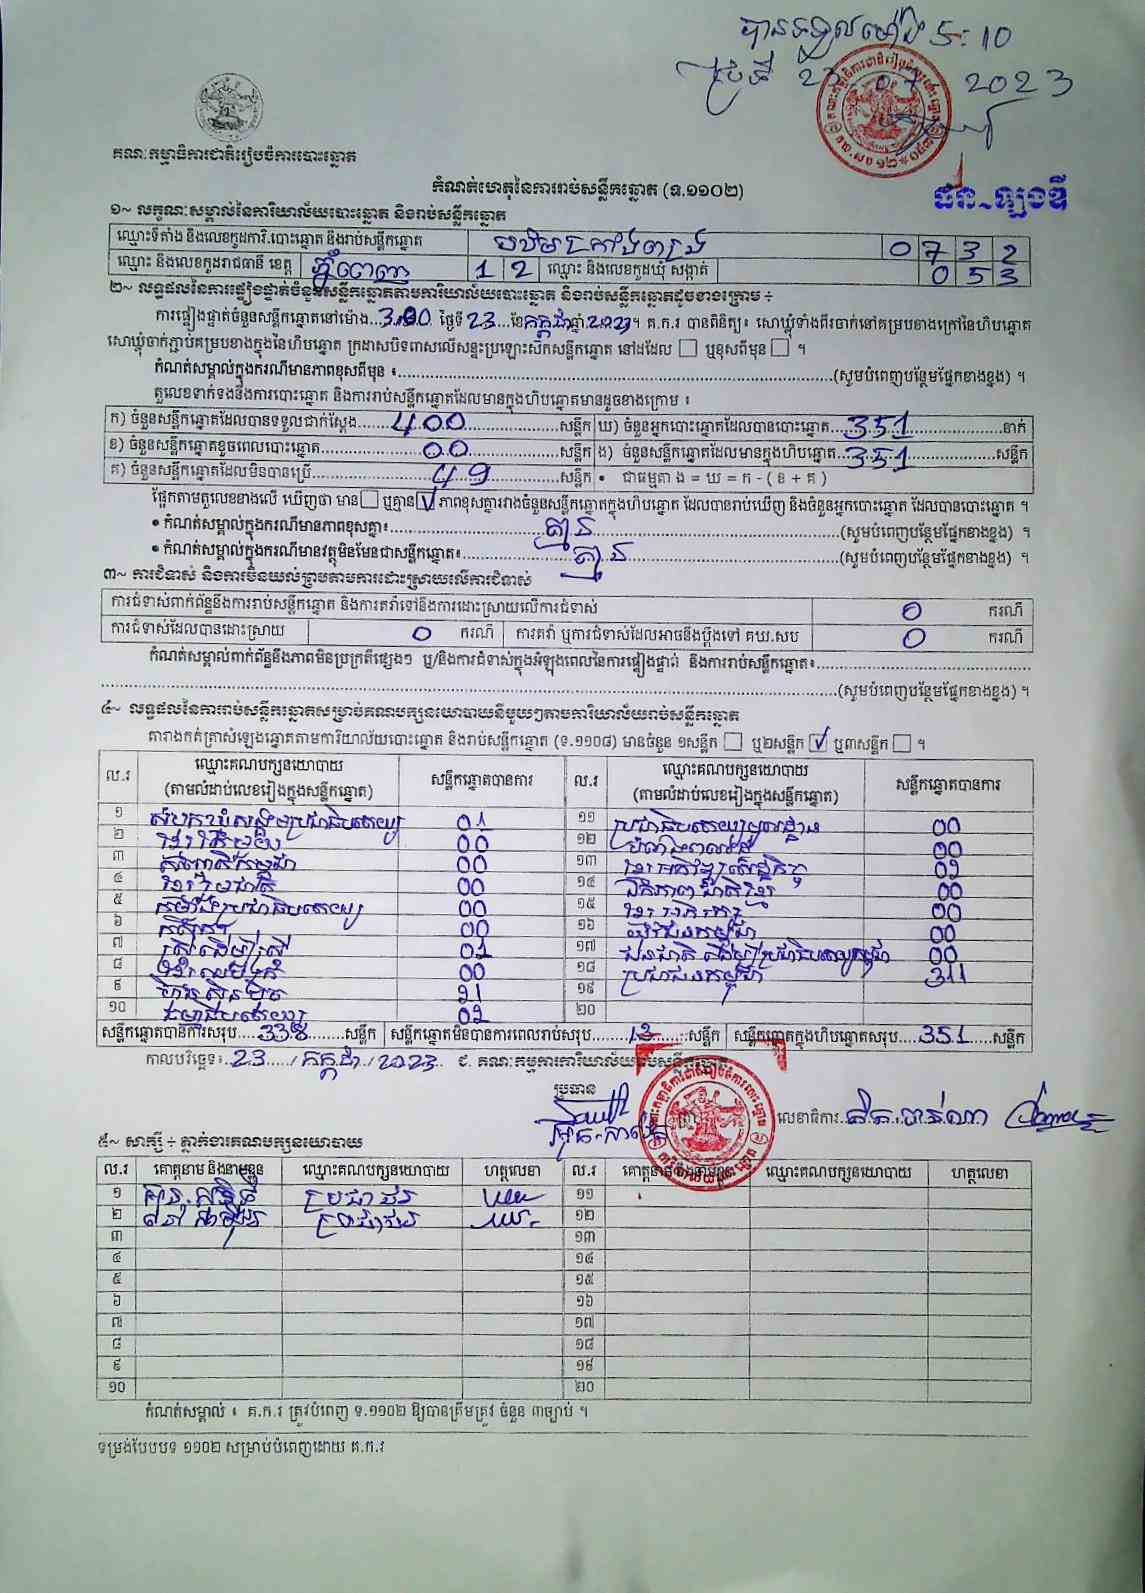 បានទទួលម៉ោង 5:10
ថ្ងៃទី 23 07 2023
គណៈកម្មាធិការជាតិរៀបចំការបោះឆ្នោត
កំណត់ហេតុនៃការរាប់សន្លឹកឆ្នោត (ទ.១១០២)
១~ លក្ខណៈសម្គាល់នៃការិយាល័យបោះឆ្នោត និងរាប់សន្លឹកឆ្នោត
ឈ្មោះទីតាំង និងលេខកូដការិ.បោះឆ្នោត និងរាប់សន្លឹកឆ្នោត 0 7 3 2
ឈ្មោះ និងលេខកូដរាជធានី ខេត្ត ភ្នំពេញ 1 2 ឈ្មោះ និងលេខកូដឃុំ សង្កាត់ 0 5 3
២~ លទ្ធផលនៃការផ្ទៀងផ្ទាត់ចំនួនសន្លឹកឆ្នោតតាមការិយាល័យបោះឆ្នោត និងរាប់សន្លឹកឆ្នោតដូចខាងក្រោម ÷
ការផ្ទៀងផ្ទាត់ចំនួនសន្លឹកឆ្នោតនៅម៉ោង...3:00 ថ្ងៃទី 23 ...ខែ កក្កដា ឆ្នាំ 2023។ គ.ក.រ បានពិនិត្យ៖ សោឃ្លុំទាំងពីរចាក់នៅគម្របខាងក្រៅនៃហិបឆ្នោត
សោឃ្លុំចាក់ភ្ជាប់គម្របខាងក្នុងនៃហិបឆ្នោត ក្រដាសបិទពាសលើសន្ទះប្រឡោះសៀតសន្លឹកឆ្នោត នៅដដែល ☐ ឬខុសពីមុន ☐ ។
កំណត់សម្គាល់ក្នុងករណីមានភាពខុសពីមុន ៖......(សូមបំពេញបន្ថែមផ្នែកខាងខ្នង) ។
តួលេខទាក់ទងនឹងការបោះឆ្នោត និងការរាប់សន្លឹកឆ្នោតដែលមានក្នុងហិបឆ្នោតមានដូចខាងក្រោម ៖
ក) ចំនួនសន្លឹកឆ្នោតដែលបានទទួលជាក់ស្តែង......400......សន្លឹក ឃ) ចំនួនអ្នកបោះឆ្នោតដែលបានបោះឆ្នោត...351......នាក់
ខ) ចំនួនសន្លឹកឆ្នោតខូចពេលបោះឆ្នោត......00......សន្លឹក ង) ចំនួនសន្លឹកឆ្នោតដែលមានក្នុងហិបឆ្នោត...351......សន្លឹក
គ) ចំនួនសន្លឹកឆ្នោតដែលមិនបានប្រើ......49......សន្លឹក • ជាធម្មតា ង = ឃ = ក - ( ខ + គ )
ផ្អែកតាមតួលេខខាងលើ ឃើញថា មាន ☐ ឬគ្មាន ☑ ភាពខុសគ្នារវាងចំនួនសន្លឹកឆ្នោតក្នុងហិបឆ្នោត ដែលបានរាប់ឃើញ និងចំនួនអ្នកបោះឆ្នោត ដែលបានបោះឆ្នោត ។
• កំណត់សម្គាល់ក្នុងករណីមានភាពខុសគ្នា៖......គ្មាន......(សូមបំពេញបន្ថែមផ្នែកខាងខ្នង) ។
• កំណត់សម្គាល់ក្នុងករណីមានវត្ថុមិនមែនជាសន្លឹកឆ្នោត៖......គ្មាន......(សូមបំពេញបន្ថែមផ្នែកខាងខ្នង) ។
៣~ ការជំទាស់ និងការមិនយល់ព្រមតាមការដោះស្រាយលើការជំទាស់
ការជំទាស់ពាក់ព័ន្ធនឹងការរាប់សន្លឹកឆ្នោត និងការតវ៉ាទៅនឹងការដោះស្រាយលើការជំទាស់ 0 ករណី
ការជំទាស់ដែលបានដោះស្រាយ 0 ករណី ការតវ៉ា ឬការជំទាស់ដែលអាចនឹងប្តឹងទៅ គឃ.សប 0 ករណី
កំណត់សម្គាល់ពាក់ព័ន្ធនឹងភាពមិនប្រក្រតីផ្សេងៗ ឬ/និងការជំទាស់ក្នុងអំឡុងពេលនៃការផ្ទៀងផ្ទាត់ និងការរាប់សន្លឹកឆ្នោត៖......
......(សូមបំពេញបន្ថែមផ្នែកខាងខ្នង) ។
៤~ លទ្ធផលនៃការរាប់សន្លឹកឆ្នោតសម្រាប់គណបក្សនយោបាយនីមួយៗតាមការិយាល័យរាប់សន្លឹកឆ្នោត
តារាងកត់ត្រាសំឡេងឆ្នោតតាមការិយាល័យបោះឆ្នោត និងរាប់សន្លឹកឆ្នោត (ទ.១១០៨) មានចំនួន ១សន្លឹក ☐ ឬ២សន្លឹក ☑ ឬ៣សន្លឹក ☐ ។
ល.រ ឈ្មោះគណបក្សនយោបាយ (តាមលំដាប់លេខរៀងក្នុងសន្លឹកឆ្នោត) សន្លឹកឆ្នោតបានការ ល.រ ឈ្មោះគណបក្សនយោបាយ (តាមលំដាប់លេខរៀងក្នុងសន្លឹកឆ្នោត) សន្លឹកឆ្នោតបានការ
១ សំបុកឃ្មុំសង្គមប្រជាធិបតេយ្យ 01 ១១ ប្រជាធិបតេយ្យមូលដ្ឋាន 00
២ ខ្មែរតែមួយ 00 ១២ 00
៣ 00 ១៣ ខ្មែរអភិវឌ្ឍន៍សេដ្ឋកិច្ច
៤ ខ្មែររួបរួមជាតិ 00 ១៤ ឯកភាពជាតិខ្មែរ 00
៥ កម្លាំងប្រជាធិបតេយ្យ 00 ១៥ ខ្មែរអភិរក្ស 00
៦ កសិករ 00 ១៦ 00
៧ ស្ត្រីដើម្បីស្ត្រី ១៧ ជនជាតិដើមប្រជាធិបតេយ្យកម្ពុជា 00
៨ 00 ១៨ ប្រជាជនកម្ពុជា 311
៩ ហ៊្វុនស៊ិនប៉ិច 21 ១៩
១០ ២០
សន្លឹកឆ្នោតបានការសរុប...338......សន្លឹក សន្លឹកឆ្នោតមិនបានការពេលរាប់សរុប......13......សន្លឹក សន្លឹកឆ្នោតក្នុងហិបឆ្នោតសរុប....351.....សន្លឹក
កាលបរិច្ឆេទ៖ 23 / កក្កដា / 2023 ជ. គណៈកម្មការការិយាល័យរាប់សន្លឹកឆ្នោត
ប្រធាន លេខាធិការ
៥~ សាក្សី ÷ ភ្នាក់ងារគណបក្សនយោបាយ
ល.រ គោត្តនាម និងនាមខ្លួន ឈ្មោះគណបក្សនយោបាយ ហត្ថលេខា ល.រ គោត្តនាម និងនាមខ្លួន ឈ្មោះគណបក្សនយោបាយ ហត្ថលេខា
១ ប្រជាជន ១១
២ ប្រជាជន ១២
៣ ១៣
៤ ១៤
៥ ១៥
៦ ១៦
៧ ១៧
៨ ១៨
៩ ១៩
១០ ២០
កំណត់សម្គាល់ ៖ គ.ក.រ ត្រូវបំពេញ ទ.១១០២ ឱ្យបានត្រឹមត្រូវ ចំនួន ៣ច្បាប់ ។
ទម្រង់បែបបទ ១១០២ សម្រាប់បំពេញដោយ គ.ក.រ